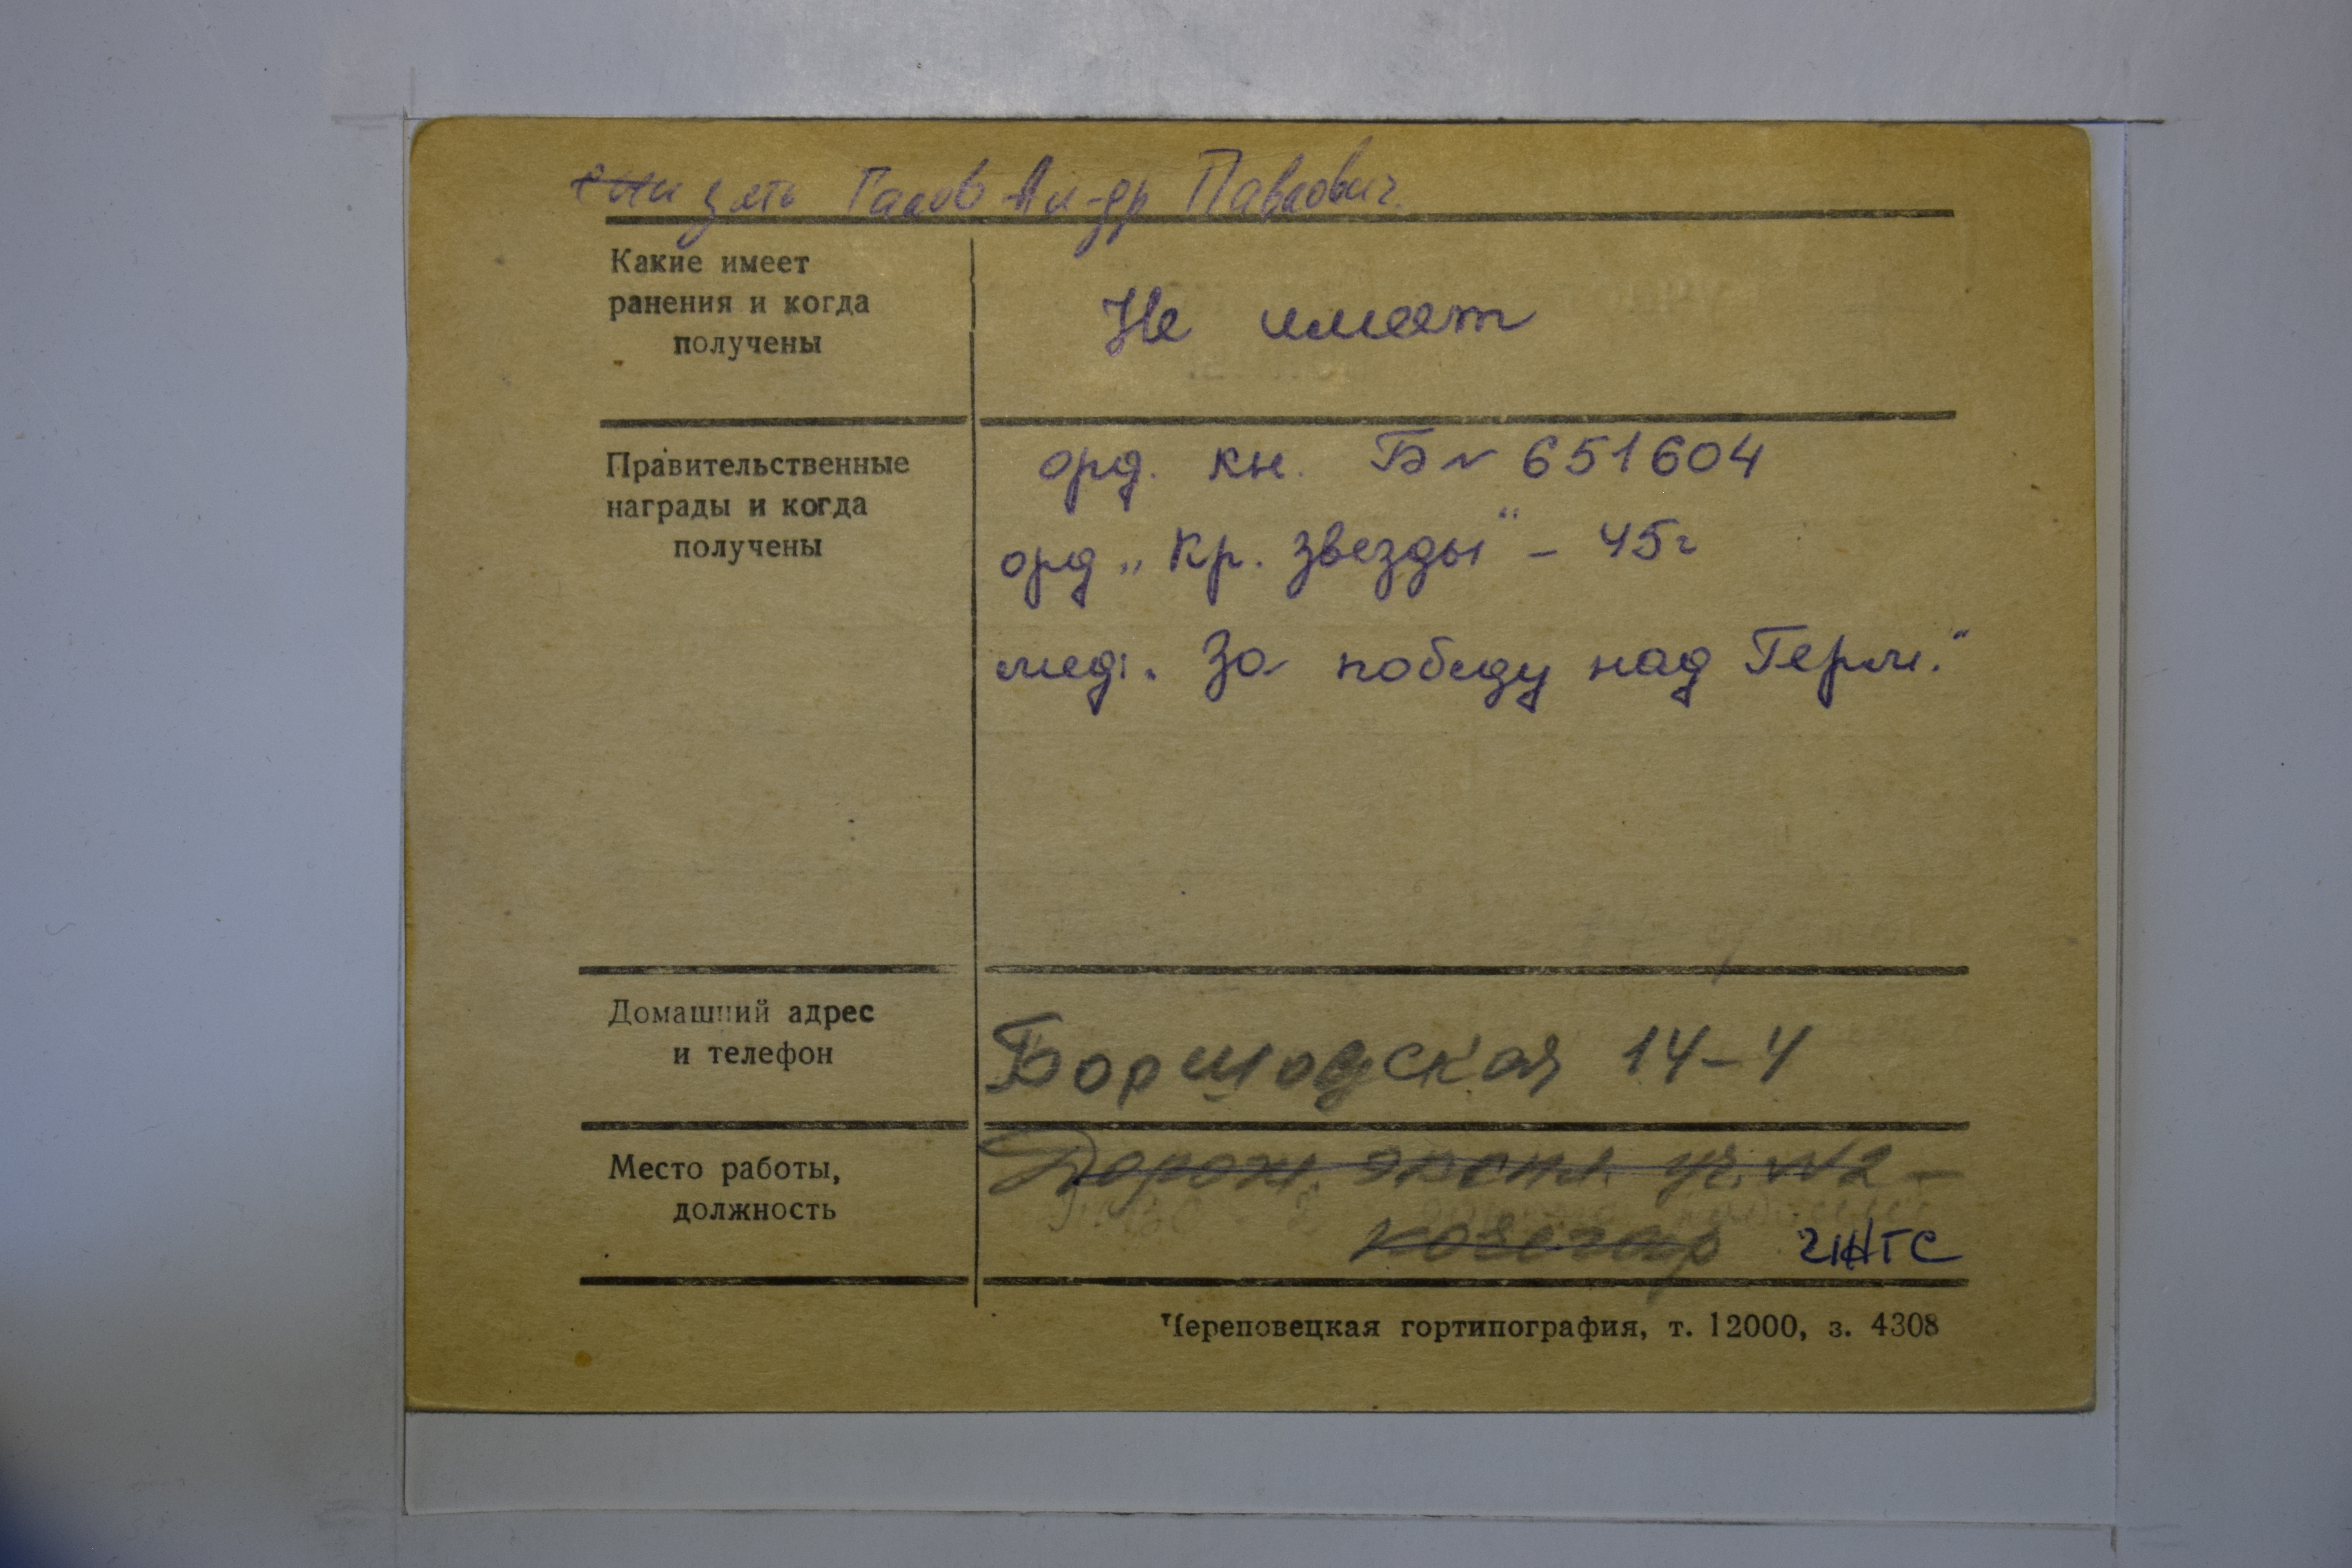 зять Ал-др Павлович.
Какие имеет
ранения и когда
получены
Не имеет
Правительственные
награды и когда
получены
орд. кн. Б № 651604
орд „Кр. Звезды“ – 45г
мед. „За победу над Герм.“
Домашний адрес
и телефон
Боршодская 14-4
Место работы,
должность
Дорож. экспл. уч. №2 –
кочегар
Череповецкая гортипография, т. 12000, з. 4308